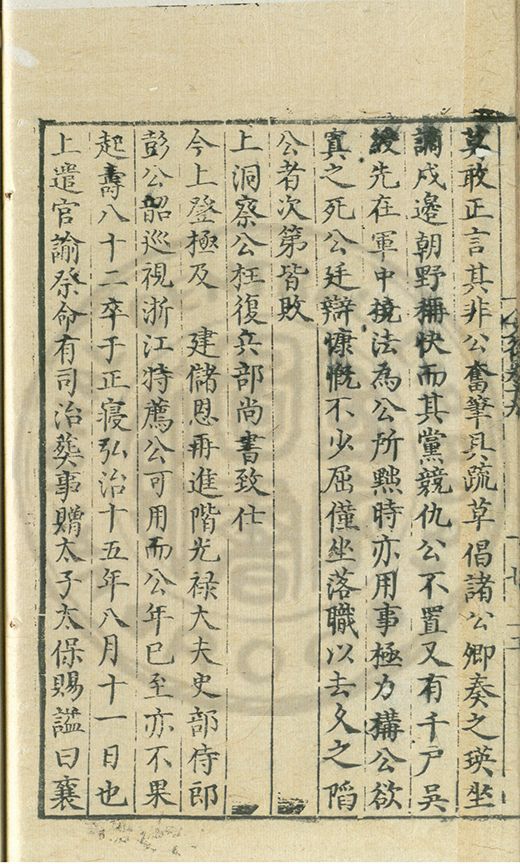 莫敢正言其非公奮筆具疏草倡諸公卿奏之瑛坐
謫戍邊朝野稱快而其黨競仇公不置又有千戶吳
綬先在軍中撓法為公所黜時亦用事極力搆公欲
寘之死公廷辯慷慨不少屈僅坐落職以去久之陷
公者次第皆敗
上洞察公枉復兵部尚書致仕
今上登極及　建儲恩再進階光祿大夫史部侍郎
彭公韶巡視浙江特薦公可用而公年已至亦不果
起壽八十二卒于正寢弘治十五年八月十一日也
上遣官諭祭命有司治葬事贈太子太保賜謚曰襄